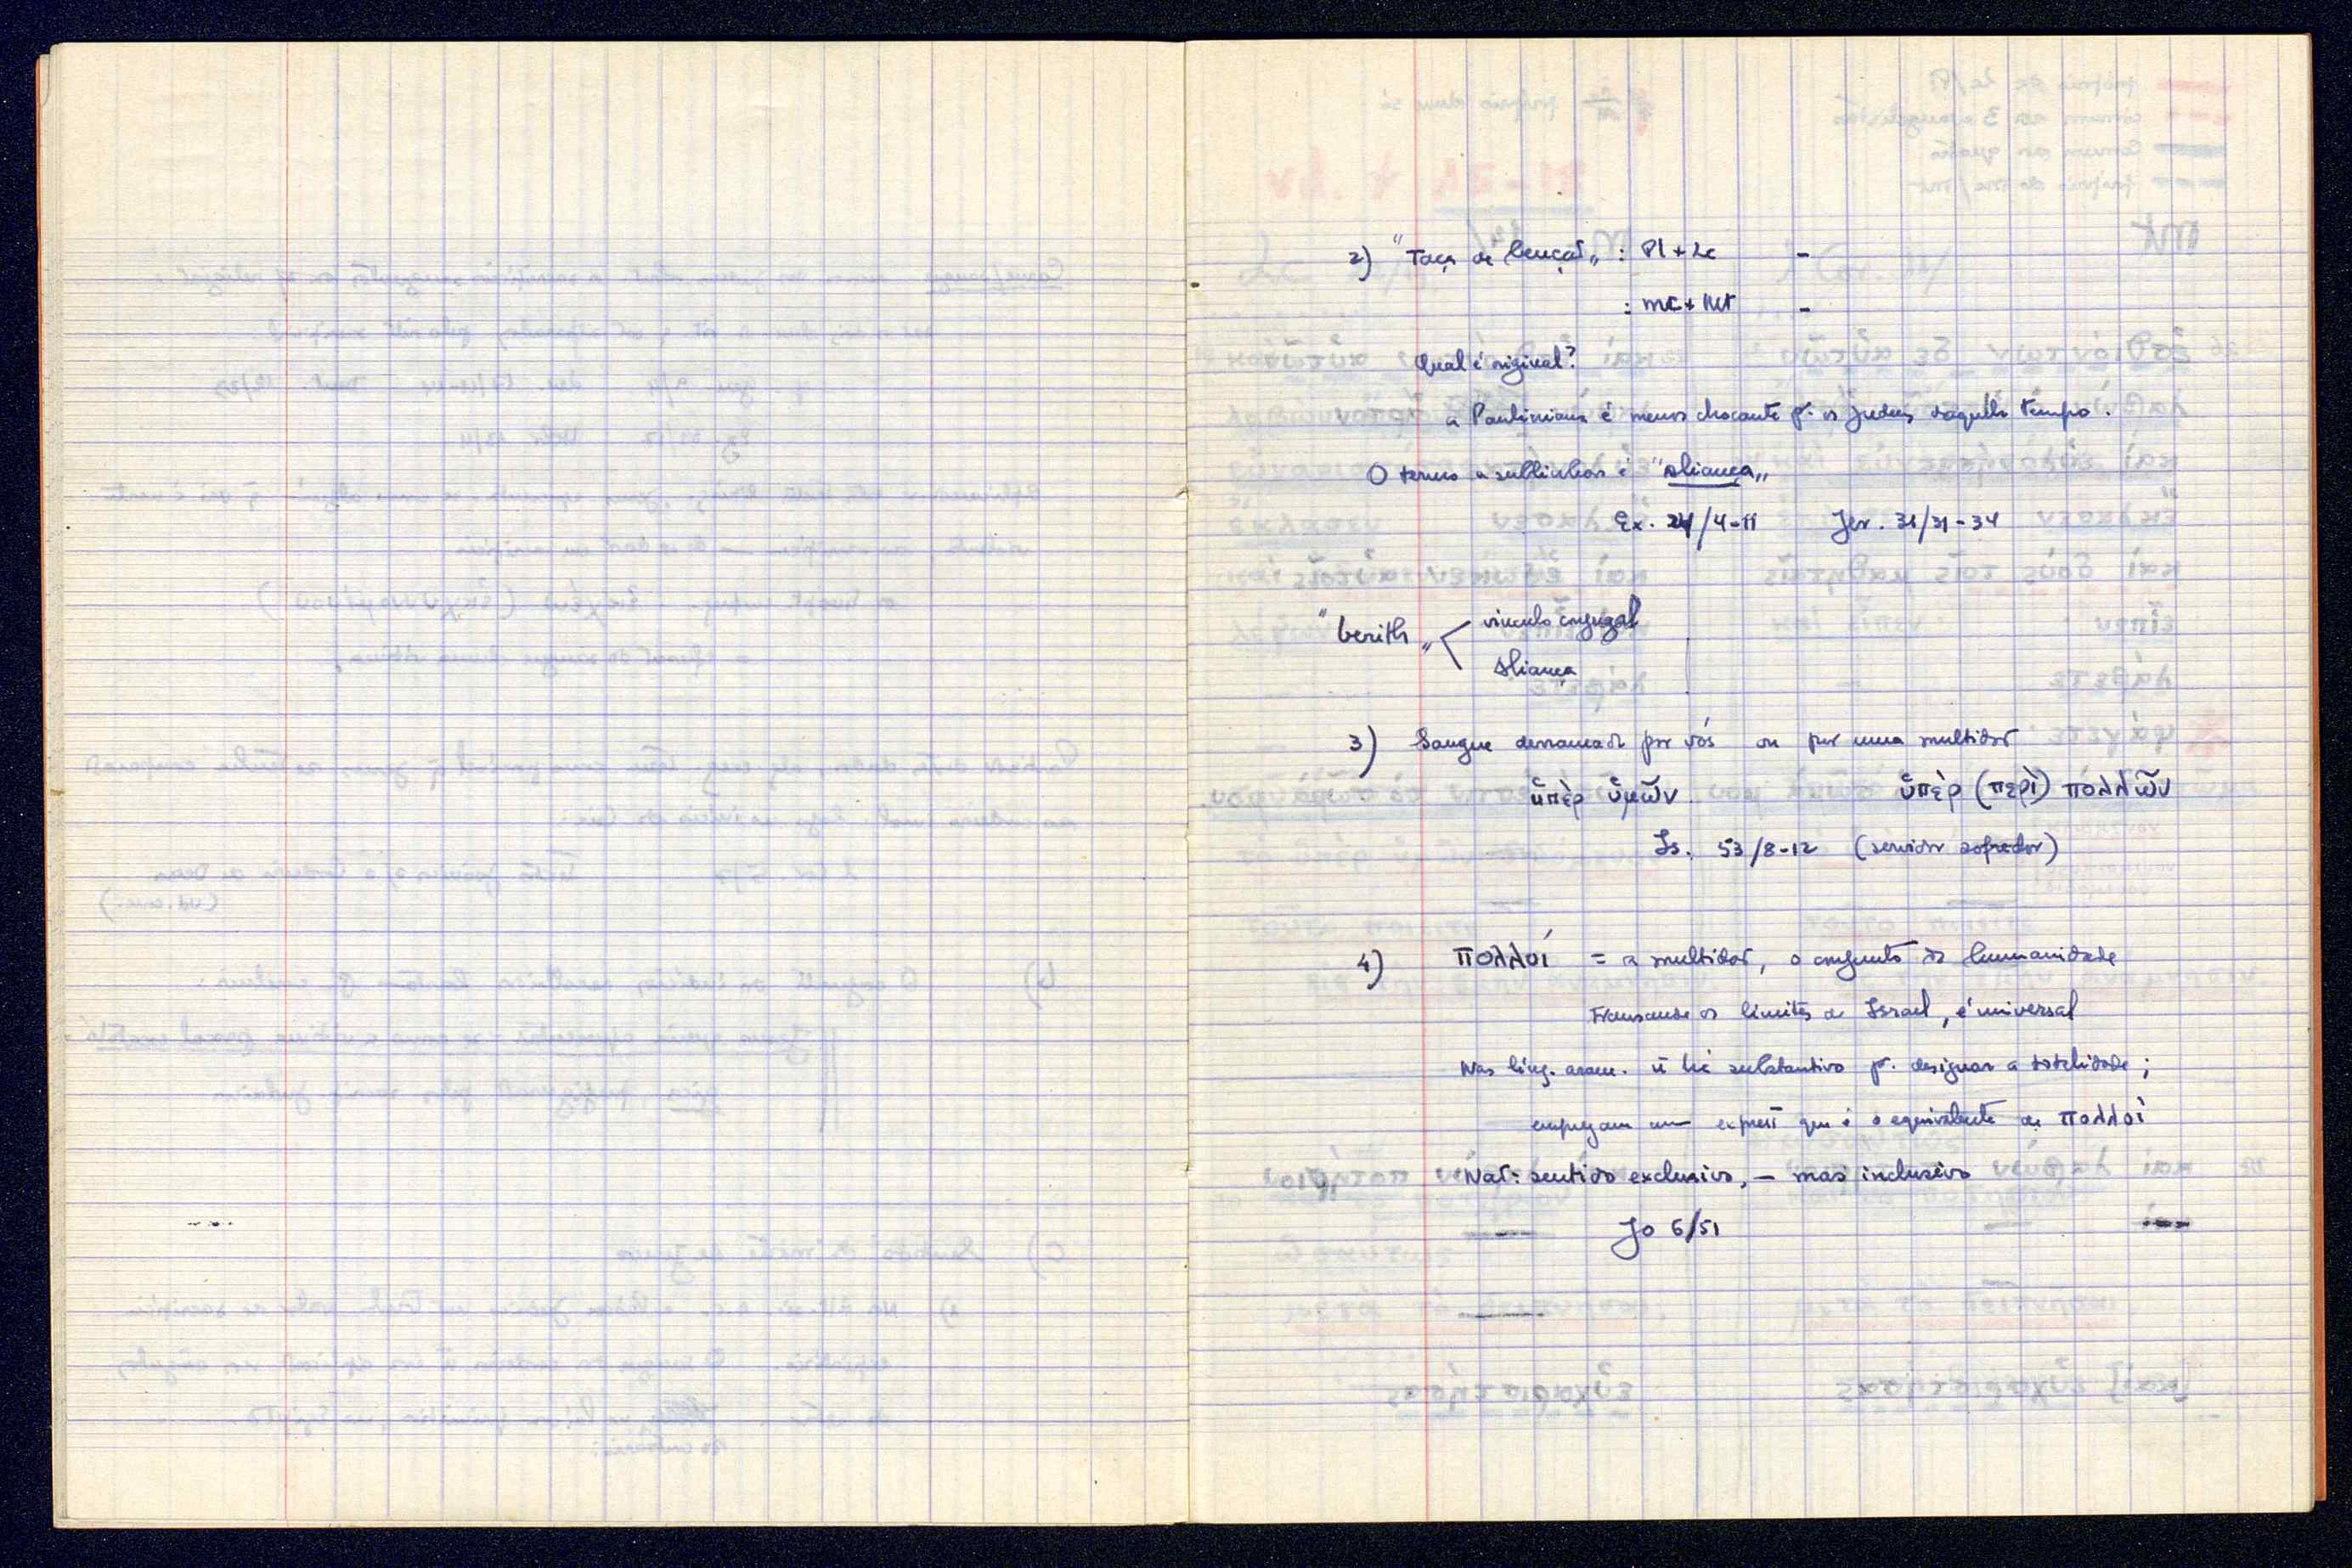 2) "Taça de bençaõ„ : Pl + Lc –
: Mc + Mt –
Qual é original?
a Pauliniana é menos chocante p. os judeus daquele tempo.
O termo a sublinhar é "aliança„
Ex. 24/4-11 Jer. 31/31-34
"berith„ < vinculo conjugal
aliança
3) Sangue derramado por vós ou por uma multidaõ
ὕπὲρ ὕμῶν ὕπὲρ (περὶ) πολλῶν
Is. 53/8-12 (servidor sofredor)
4) πολλοί = a multidaõ, o conjunto da humanidade
Transcende os limites de Israel, é universal
Nas líng. aram. ñ há substantivo p. designar a totalidade;
empregam uma expressõ que é o equivalente de πολλοὶ
Naõ: sentido exclusivo, – mas inclusivo
Jo 6/51